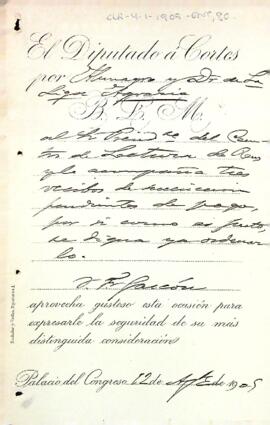 CLR-4-1-1905-Ent, 90.
El Diputado á Cortes
por Almagro y Dr de la
Liga Agraria
B. L. M.
al Sr Presidte del Cen-
tro de Lectura de Reus
y le acompaña tres
recibos de suscripcion
pendientes de pago,
por si como es justo,
se digna ya ordenar-
lo.
Gascón
aprovecha gustoso esta ocasión para
expresarle la seguridad de su más
distinguida consideración
Palacio del Congreso 12 de de 1905